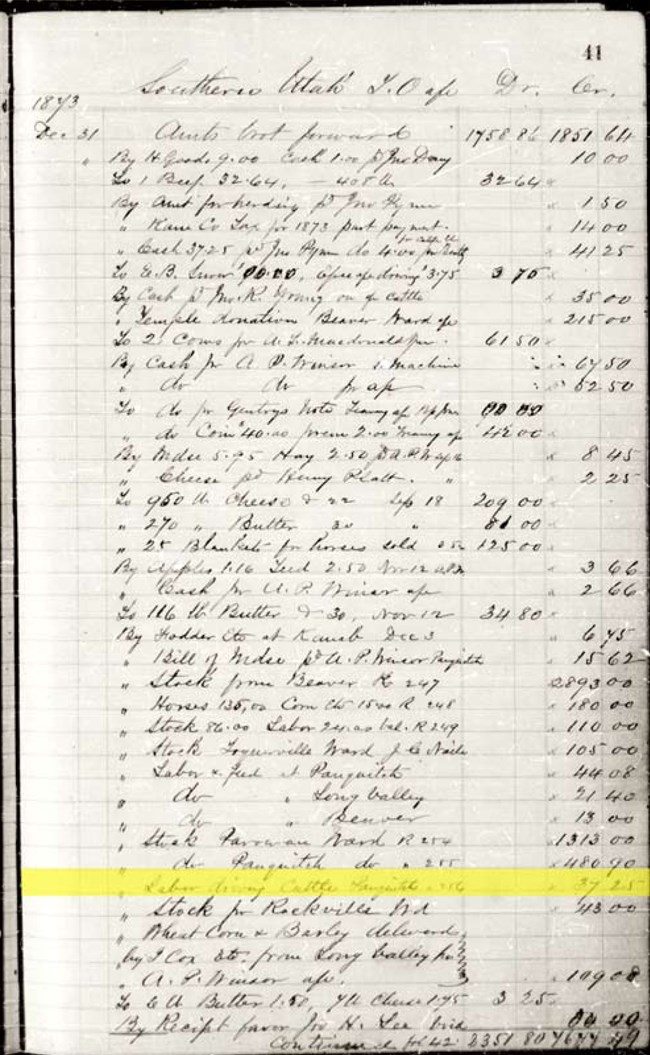 41
Southern Utah T. O a/c Dr. Cr.
1873
Dec 31 Amts brot forward 1758 86 1851 64
" By H Goods 9.00 Cash 1.00 pr Jno Day 10 00
To 1 Beef. 32.64, — 408 lb 32 64
By Amt for herding pr Jno 1 50
" Kane Co Tax for 1873 part payment. 14 00
" Cash 37.25 pr Jno do 4.00 41 25
To E. B. Snow driving 3.75 3 75
By Cash pr Jno. R. Young on a/c cattle 35 00
" Temple donation Beaver Ward a/c 215 00
To 2 Cows for A. F. Macdonald 61 50
By Cash pr A. P. Winsor Machine 67 50
" do do pr a/c 52 50
To do pr Gentrys Note
" do Coin 40.00 prem 2.00 42 00
By Mdse 5.95 Hay 2.50 8 45
" Cheese pr Henry Platt. " 2 25
To 950 lb Cheese @ 22 Sep 18 209 00
" 270 " Butter 30 " 81 00
" 25 Blankets for horses sold 125 00
By Apples 1.16 Seed 2.50 Nov 12 3 66
" Cash pr A. P. Winsor a/c 2 66
To 116 lb Butter @ 30, Nov 12 34 80
By Fodder Etc at Kanab Dec 3 6 75
" Bill of Mdse pr A. P. Winsor Panguitch 15 62
" Stock from Beaver R 247 2893 00
" Horses 135,00 Corn Etc R 248 180 00
" Stock 86.00 Labor 24.00 bal. R 249 110 00
" Stock Toquerville Ward 105 00
" Labor & feed at Panguitch 44 08
" do " Long Valley 21 40
" do " 13 00
" Stock Parowan Ward R 254 1313 00
" do Panguitch do " 255 480 90
" Labor driving Cattle Panguitch " 256 37 25
" Stock pr Rockville Wd 43 00
" Wheat Corn & Barley delivered
" by Cox Etc. from Long Valley
" A. P. Winsor a/c. 109 08
To 6 lb Butter 1.50, 7 lb Cheese 1.75 3 25
" By Receipt favor Jno H. Lee
Continued fol 42 2351 80